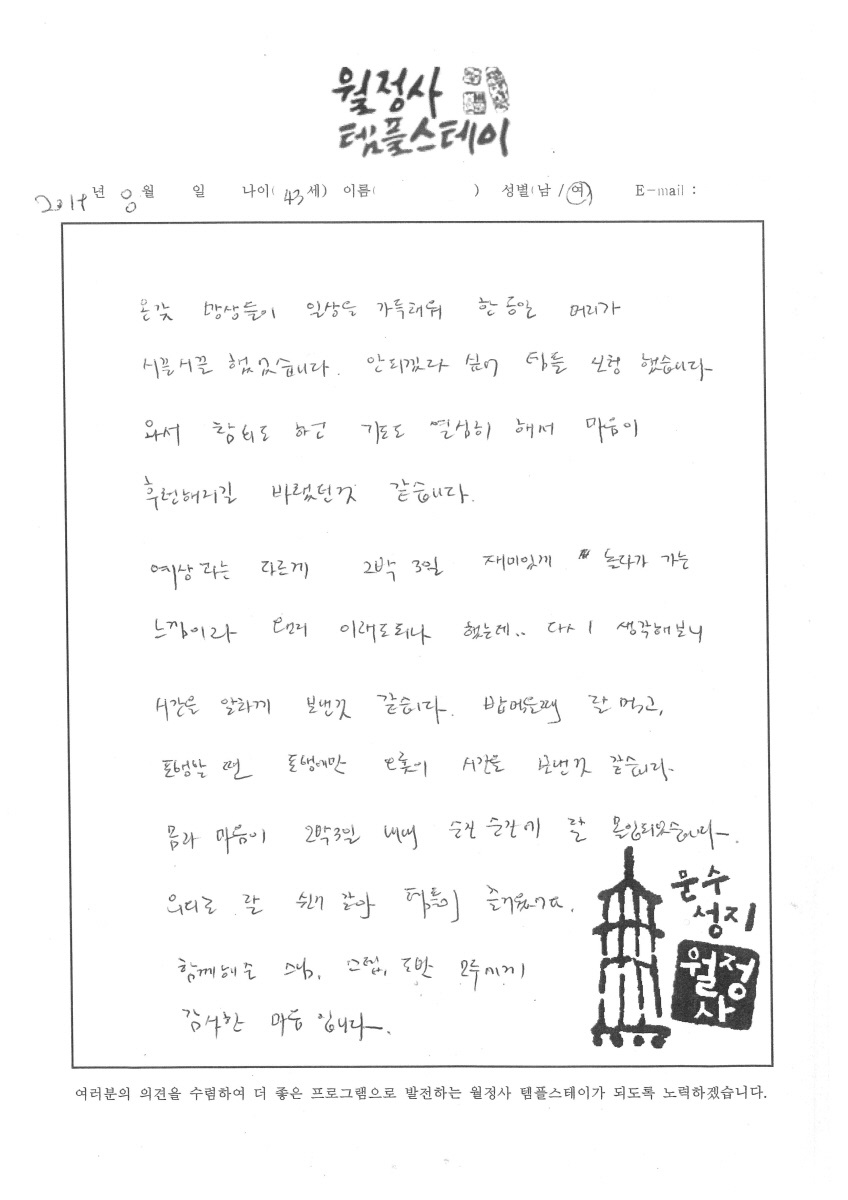 월정사
템플스테이
2014년 8월 일 나이( 43세) 이름( ) 성별(남 / 여) E-mail :
온갖 망상들이 일상을 가득채워 한동안 머리가
시끌시끌 했었습니다. 안되겠다 싶어 템플 신청 했습니다
와서 참회도 하고 기도도 열심히 해서 마음이
후련해지길 바랬던것 같습니다.
예상과는 다르게 2박 3일 재미있게 놀다가 가는
느낌이라 이래도되나 했는데.. 다시 생각해보니
시간을 알차게 보낸것 같습니다. 밥먹을때 잘 먹고,
포행할 땐 포행에만 오롯이 시간을 보낸것 같습니다.
몸과 마음이 2박3일 내내 순간 순간에 잘 몰입되었습니다.
의외로 잘 쉰거 같아 템플이 즐거웠어요.
함께해준 스님, 스텝, 도반 모두에게
감사한 마음 입니다.
문수
성지
월정
사
여러분의 의견을 수렴하여 더 좋은 프로그램으로 발전하는 월정사 템플스테이가 되도록 노력하겠습니다.